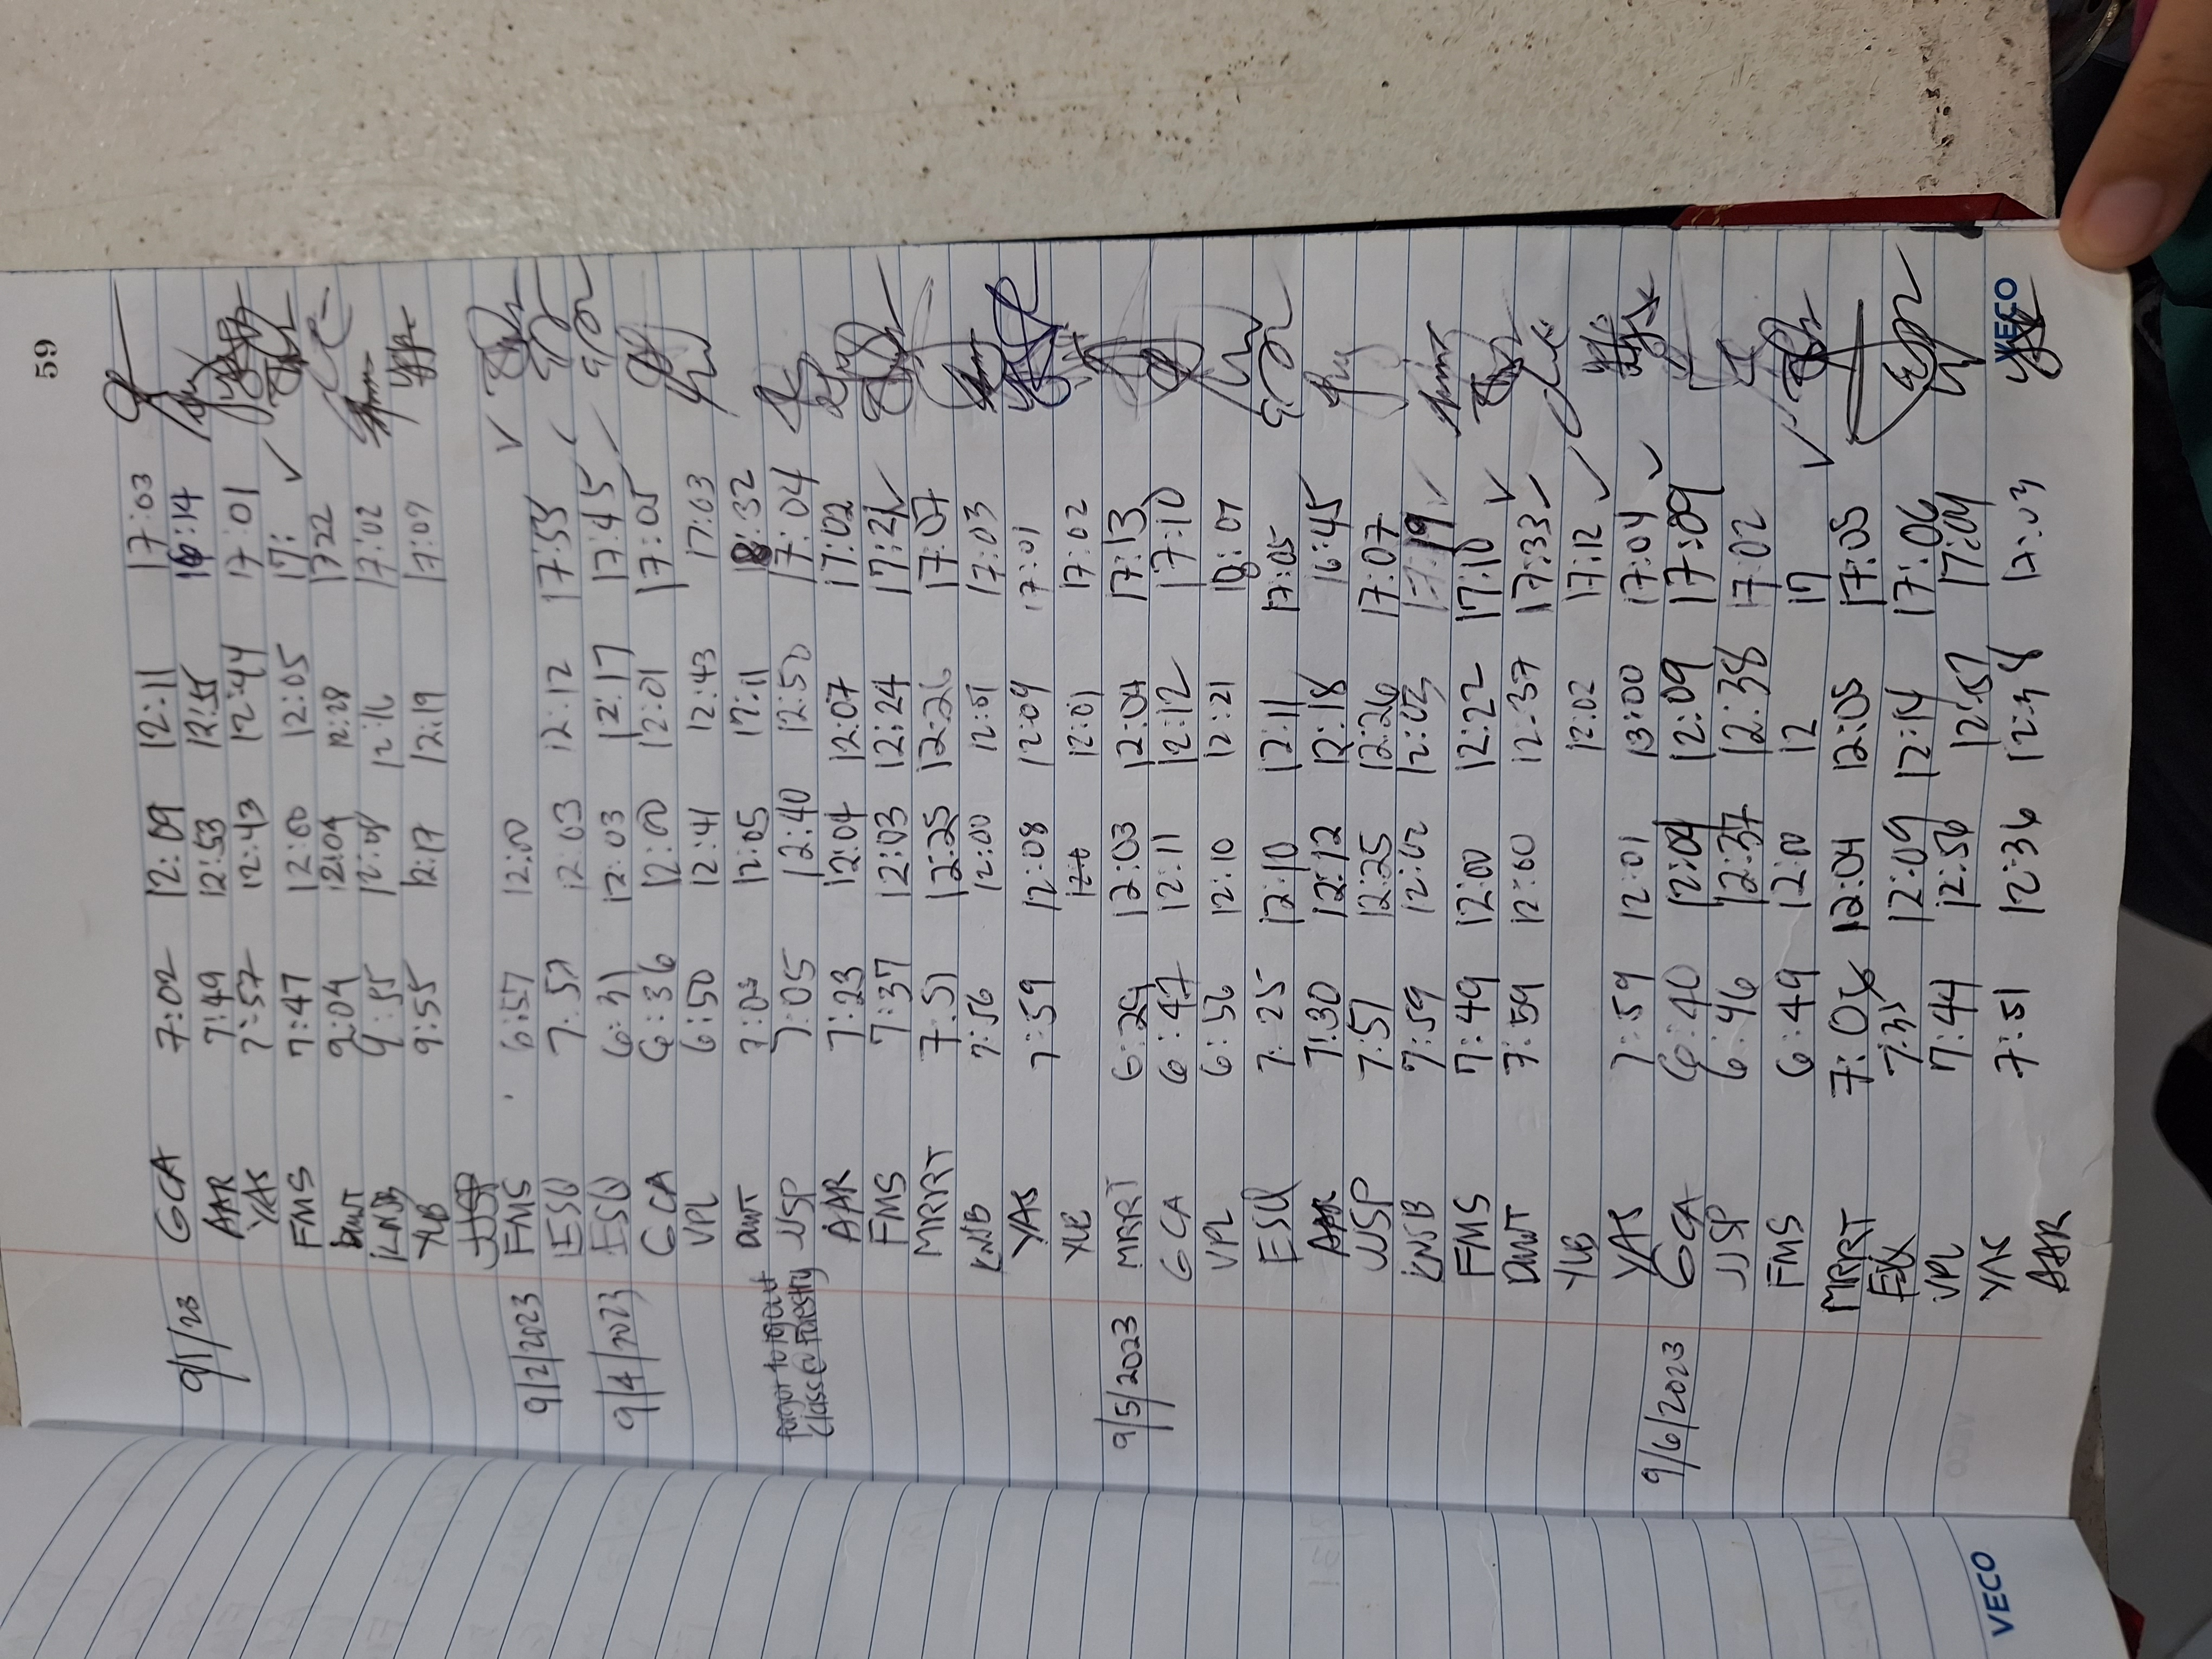 59
9/1/23 GCA 7:02 12:09 12:11 17:03
AAR 7:49 12:53 12:55 16:14
YAS 7:57 12:43 12:44 17:01
FMS 7:47 12:00 12:05 17: ✓
DWT 9:04 12:04 12:28 1722
KNSB 9:55 12:16 17:02
YLB 9:55 12:17 12:19 17:07
JJSP
9/2/2023 FMS 6:57 12:00 ✓
ESQ 7:57 12:03 12:12 17:55
9/4/2023 ESQ 6:31 12:03 12:17 17:45
GCA 6:36 12:00 12:01 17:05
VPL 6:50 12:41 12:43 17:03
DWT 7:03 12:05 12:11 18:32
forgot to logout JJSP 7:05 12:40 12:50 17:04
class @ Forestry AAR 7:23 12:04 12:07 17:02
FMS 7:37 12:03 12:24 17:21 ✓
MRRT 7:51 12:25 12:26 17:07
KNSB 7:56 12:00 12:01 17:03
YAS 7:59 12:08 12:09 17:01
YLB 12:01 17:02
9/5/2023 MRRT 6:29 12:03 12:04 17:13
GCA 6:47 12:11 12:12 17:10
VPL 6:56 12:10 12:21 18:07
ESQ 7:25 12:10 12:11 17:05
AAR 7:30 12:12 12:18 16:45
JJSP 7:57 12:25 12:26 17:07
KNSB 7:59 12:02 12:03 17:19 ✓
FMS 7:49 12:00 12:22 17:10 ✓
DWT 7:59 12:00 12:37 17:33 ✓
YLB 12:02 17:12 ✓
YAS 7:59 12:01 13:00 17:04 ✓
9/6/2023 GCA 6:40 12:04 12:09 17:09
JJSP 6:46 12:37 12:38 17:02
FMS 6:49 12:00 12 17 ✓
MRRT 7:06 12:04 12:05 17:05
ESQ 7:35 12:09 12:14 17:06
VPL 7:44 12:56 12:57 17:04
YAS 7:51 12:36 12:38 17:03
AAR
VECO
VECO